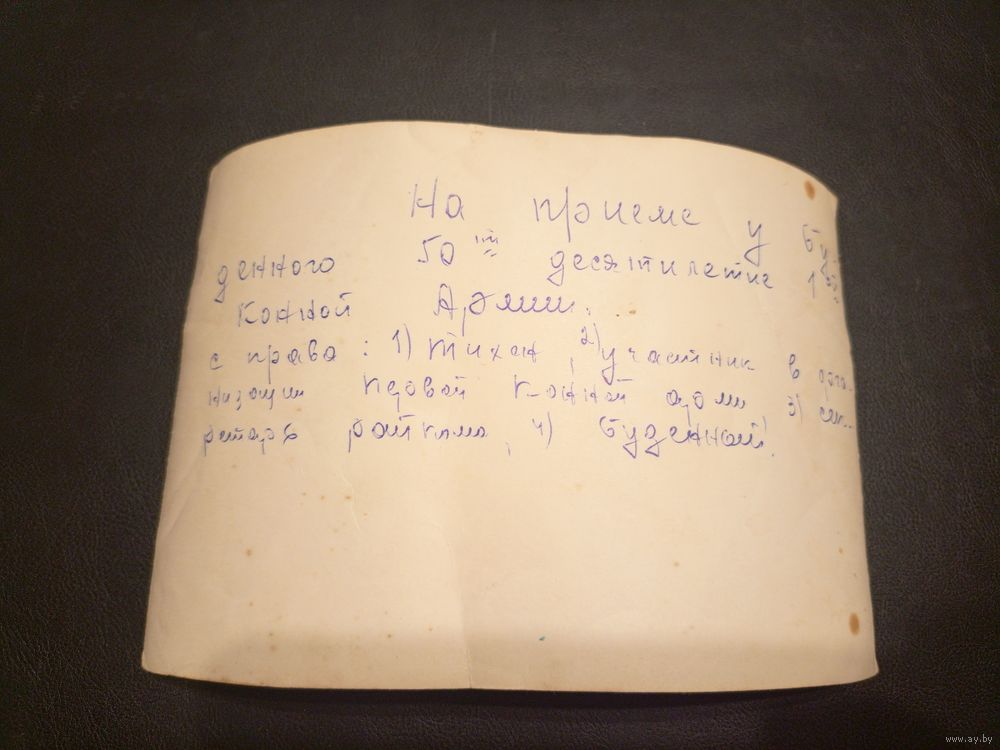 На приеме у Бу-
денного 50тие десятилетие 1ой
Конной Армии.
с право: 1) Тихон, 2) участник в орга-
низации Первой Конной арми, 3) сек-
ретарь райкома, 4) Буденный.
www.ay.by